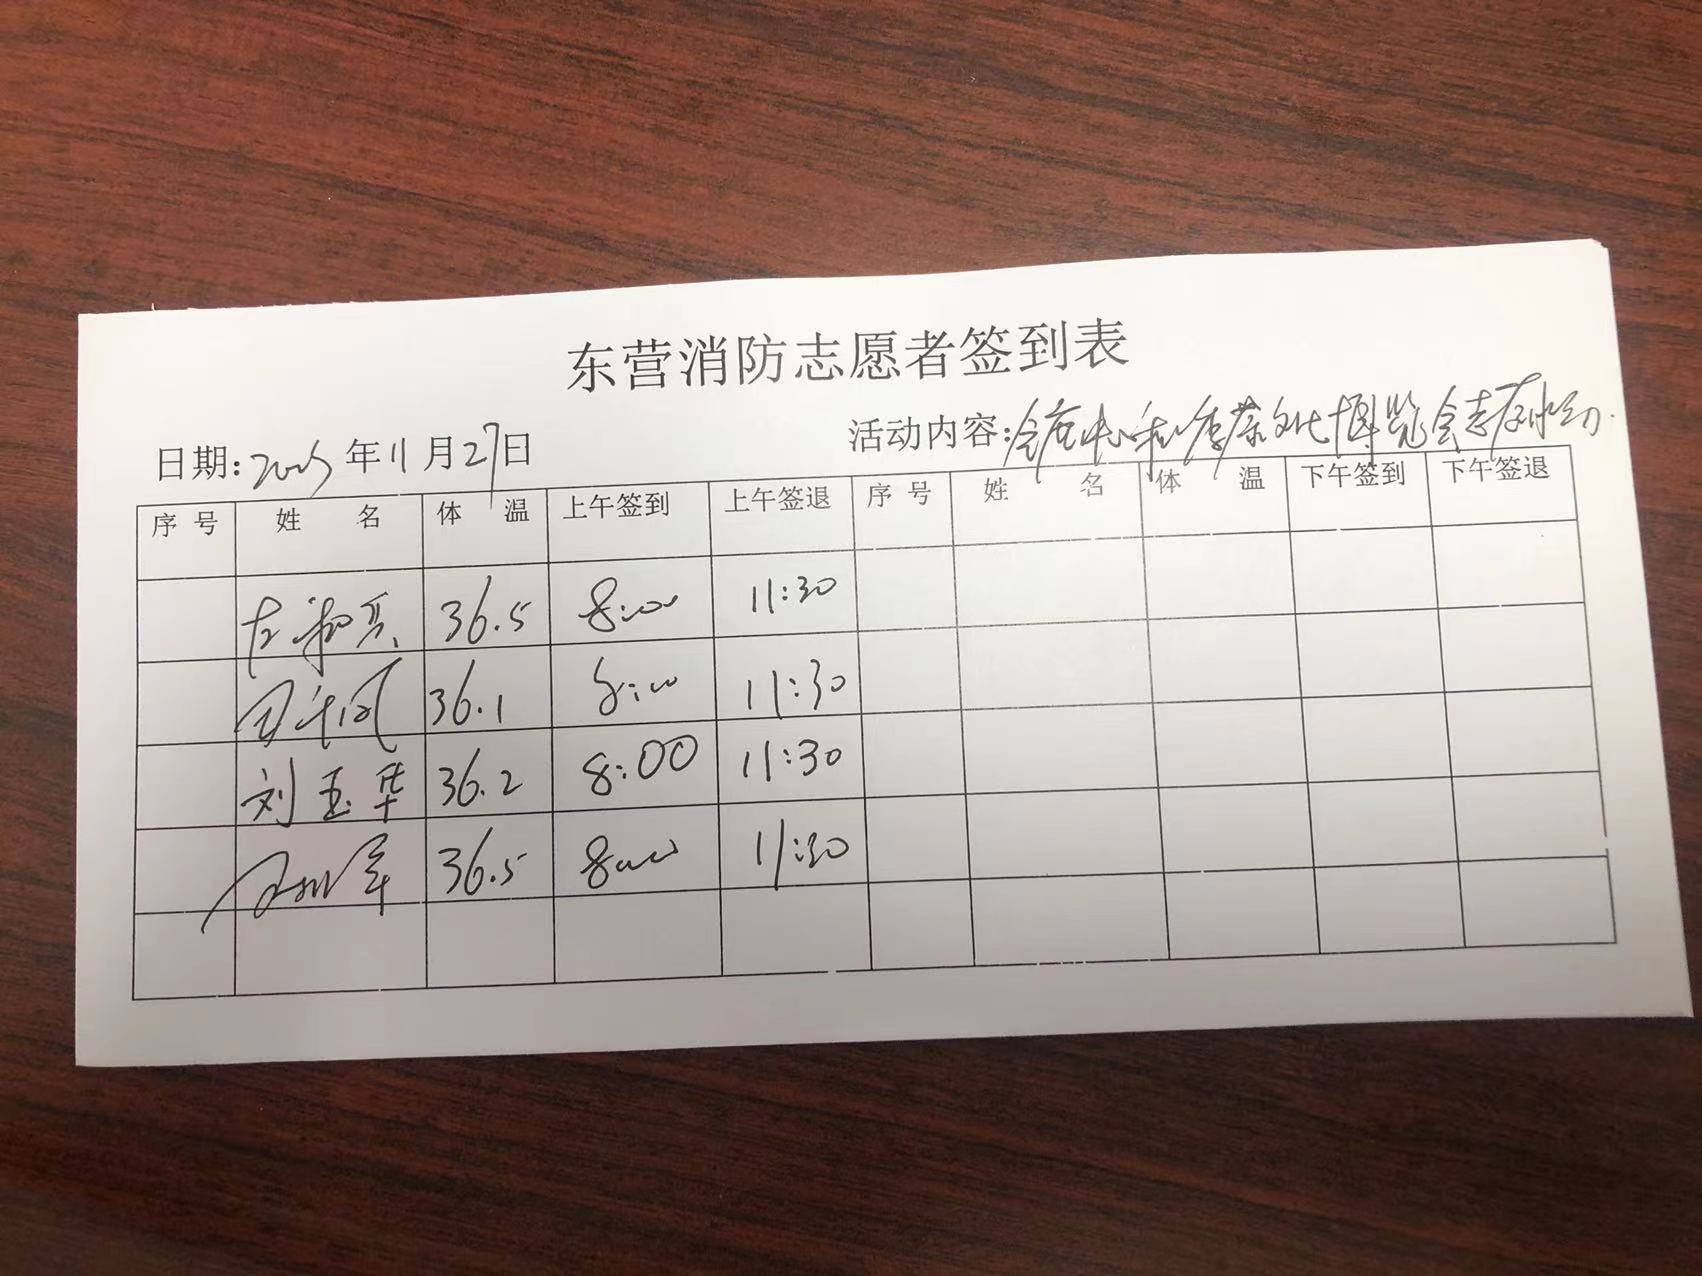 东营消防志愿者签到表
日期: 年11月27日 活动内容: 茶文化博览会志愿活动.
序号 姓名 体温 上午签到 上午签退 序号 姓名 体温 下午签到 下午签退
36.5 8:00 11:30
36.1 8:00 11:30
刘玉华 36.2 8:00 11:30
36.5 8:00 11:30